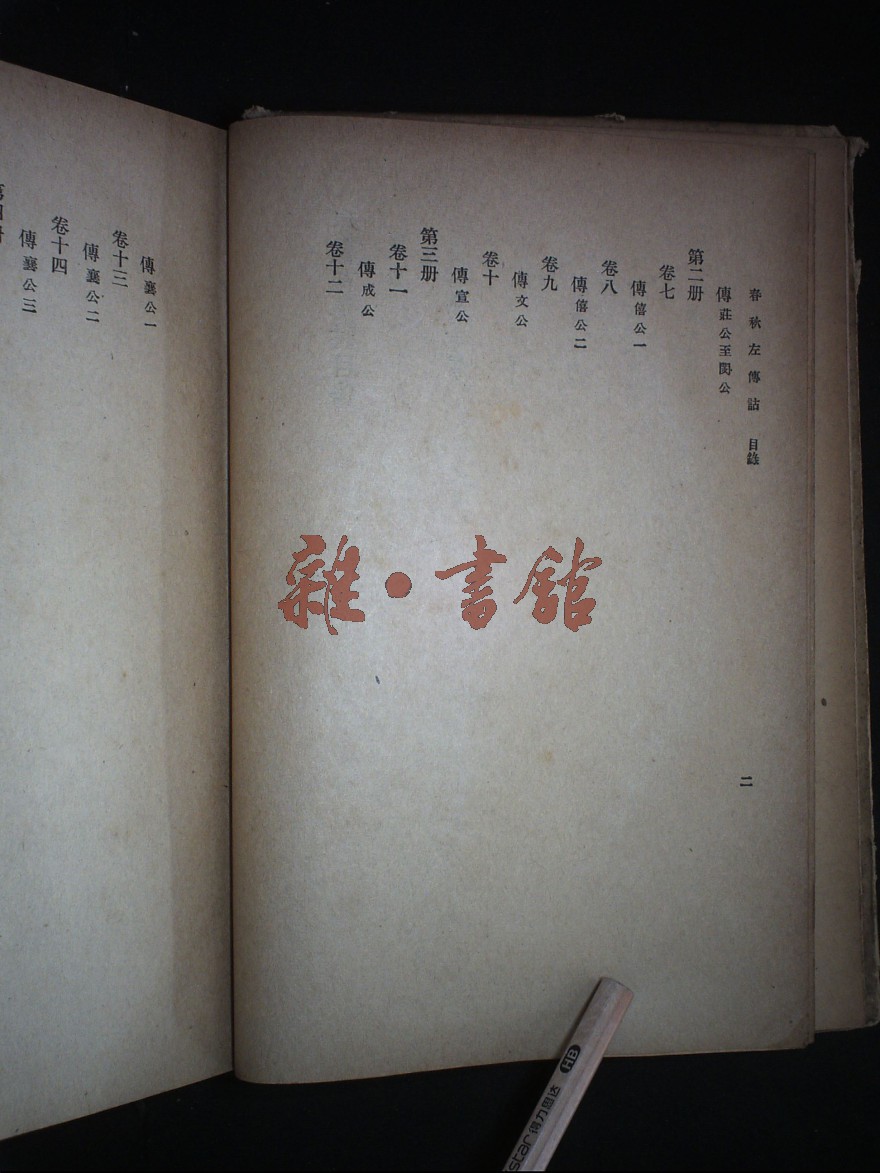 春秋左傳詁 目錄
二
傳莊公至閔公
第二册
卷七
傳僖公一
卷八
傳僖公二
卷九
傳文公
卷十
傳宣公
第三册
卷十一
傳成公
卷十二
傳襄公一
卷十三
傳襄公二
卷十四
傳襄公三
雜·書館
star 得力思达 HB